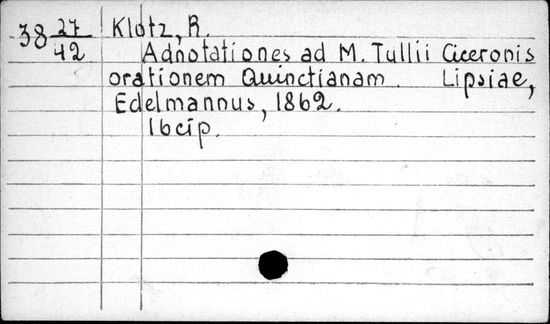 38 27/42 Klotz, R.
Adnotationes ad M. Tullii Ciceronis
orationem Quinctianam. Lipsiae,
Edelmannus, 1862.
16 cip.